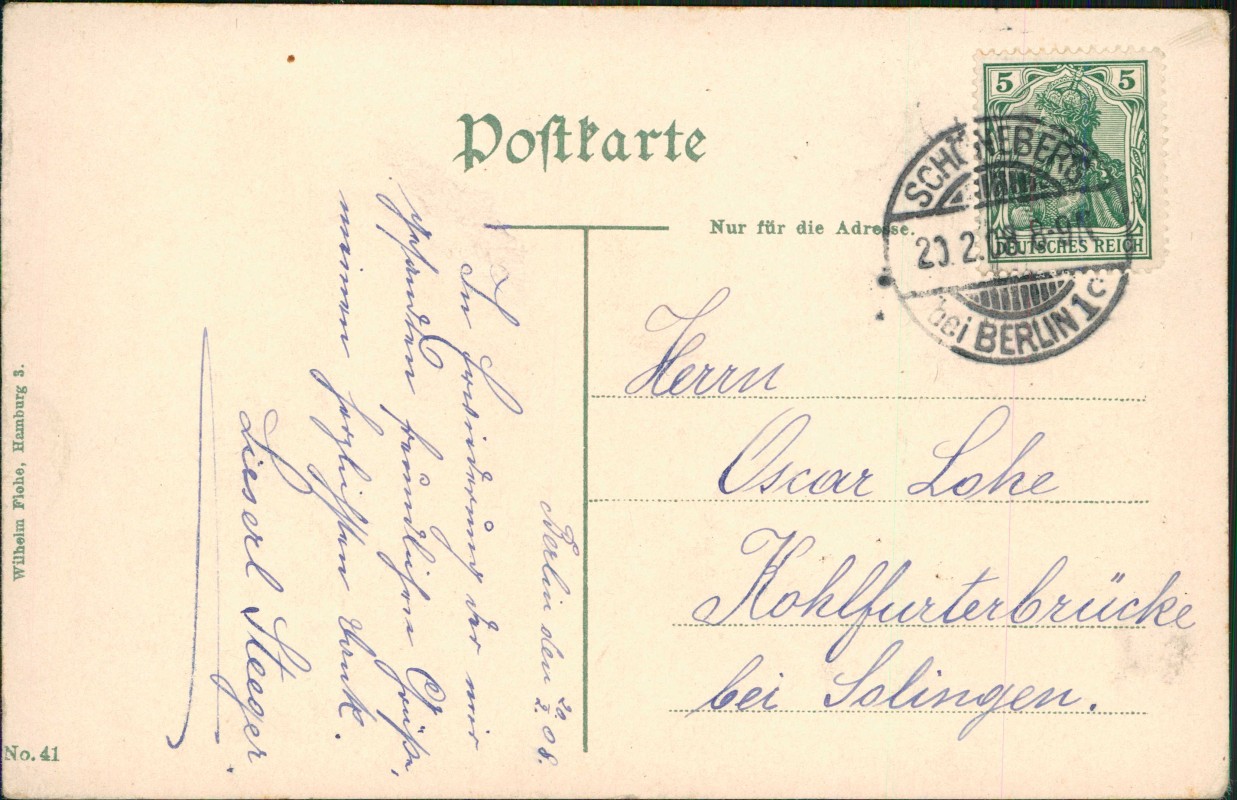 Postkarte
Nur für die Adresse.
5 5
DEUTSCHES REICH
SCHÖNEBERG
20.2.08. 8-9N
bei BERLIN 1 c
Herrn
Oscar Lohe
Kohlfurterbrücke
bei Solingen.
Berlin den 20/2 08.
In Erwiderung der mir
gesandten freundlichen Grüße,
meinen herzlichsten Dank.
Lieserl Steeger.
Wilhelm Flohe, Hamburg 3.
No. 41